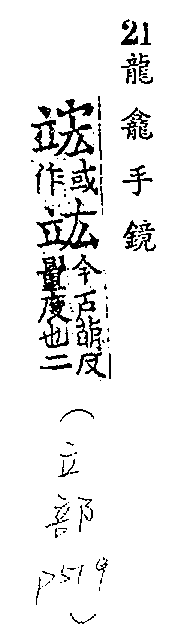 21 龍龕手鏡
竤或作竑今戶萌反量度也二
(立部 p519)